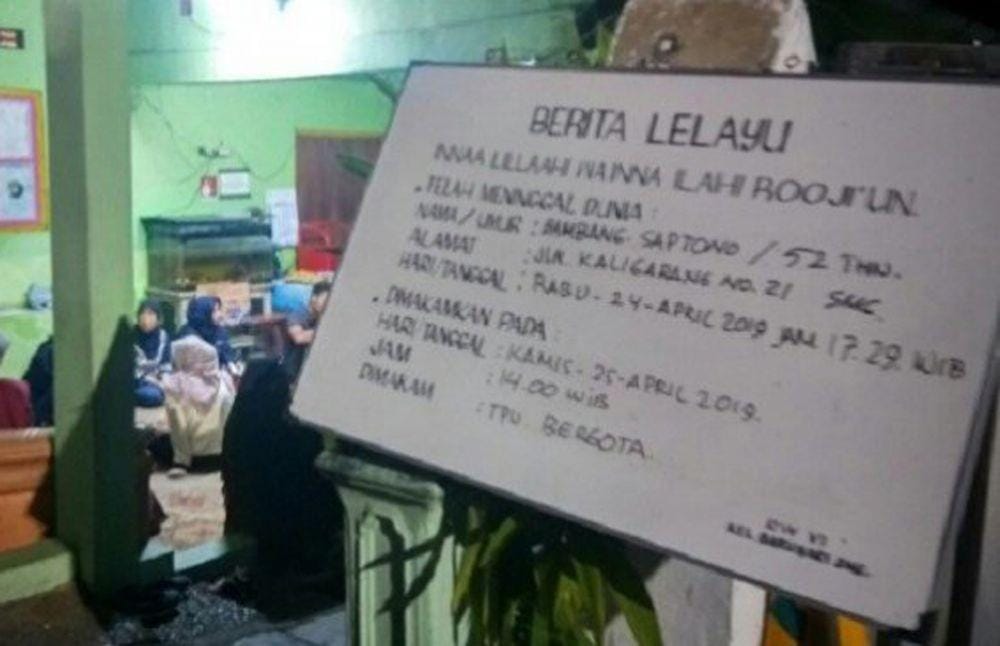 BERITA LELAYU
INNAA LILLAAHI WA INNA ILAHI ROOJI'UN.
• TELAH MENINGGAL DUNIA :
NAMA / UMUR : BAMBANG SAPTONO / 52 THN.
ALAMAT : JLN. KALIGARANG NO. 21 SMG.
HARI/TANGGAL : RABU - 24 - APRIL 2019 JAM 17.29 WIB
• DIMAKAMKAN PADA :
HARI TANGGAL : KAMIS - 25 - APRIL 2019.
JAM : 14.00 WIB
DIMAKAM : TPU BERGOTA.
KEL.